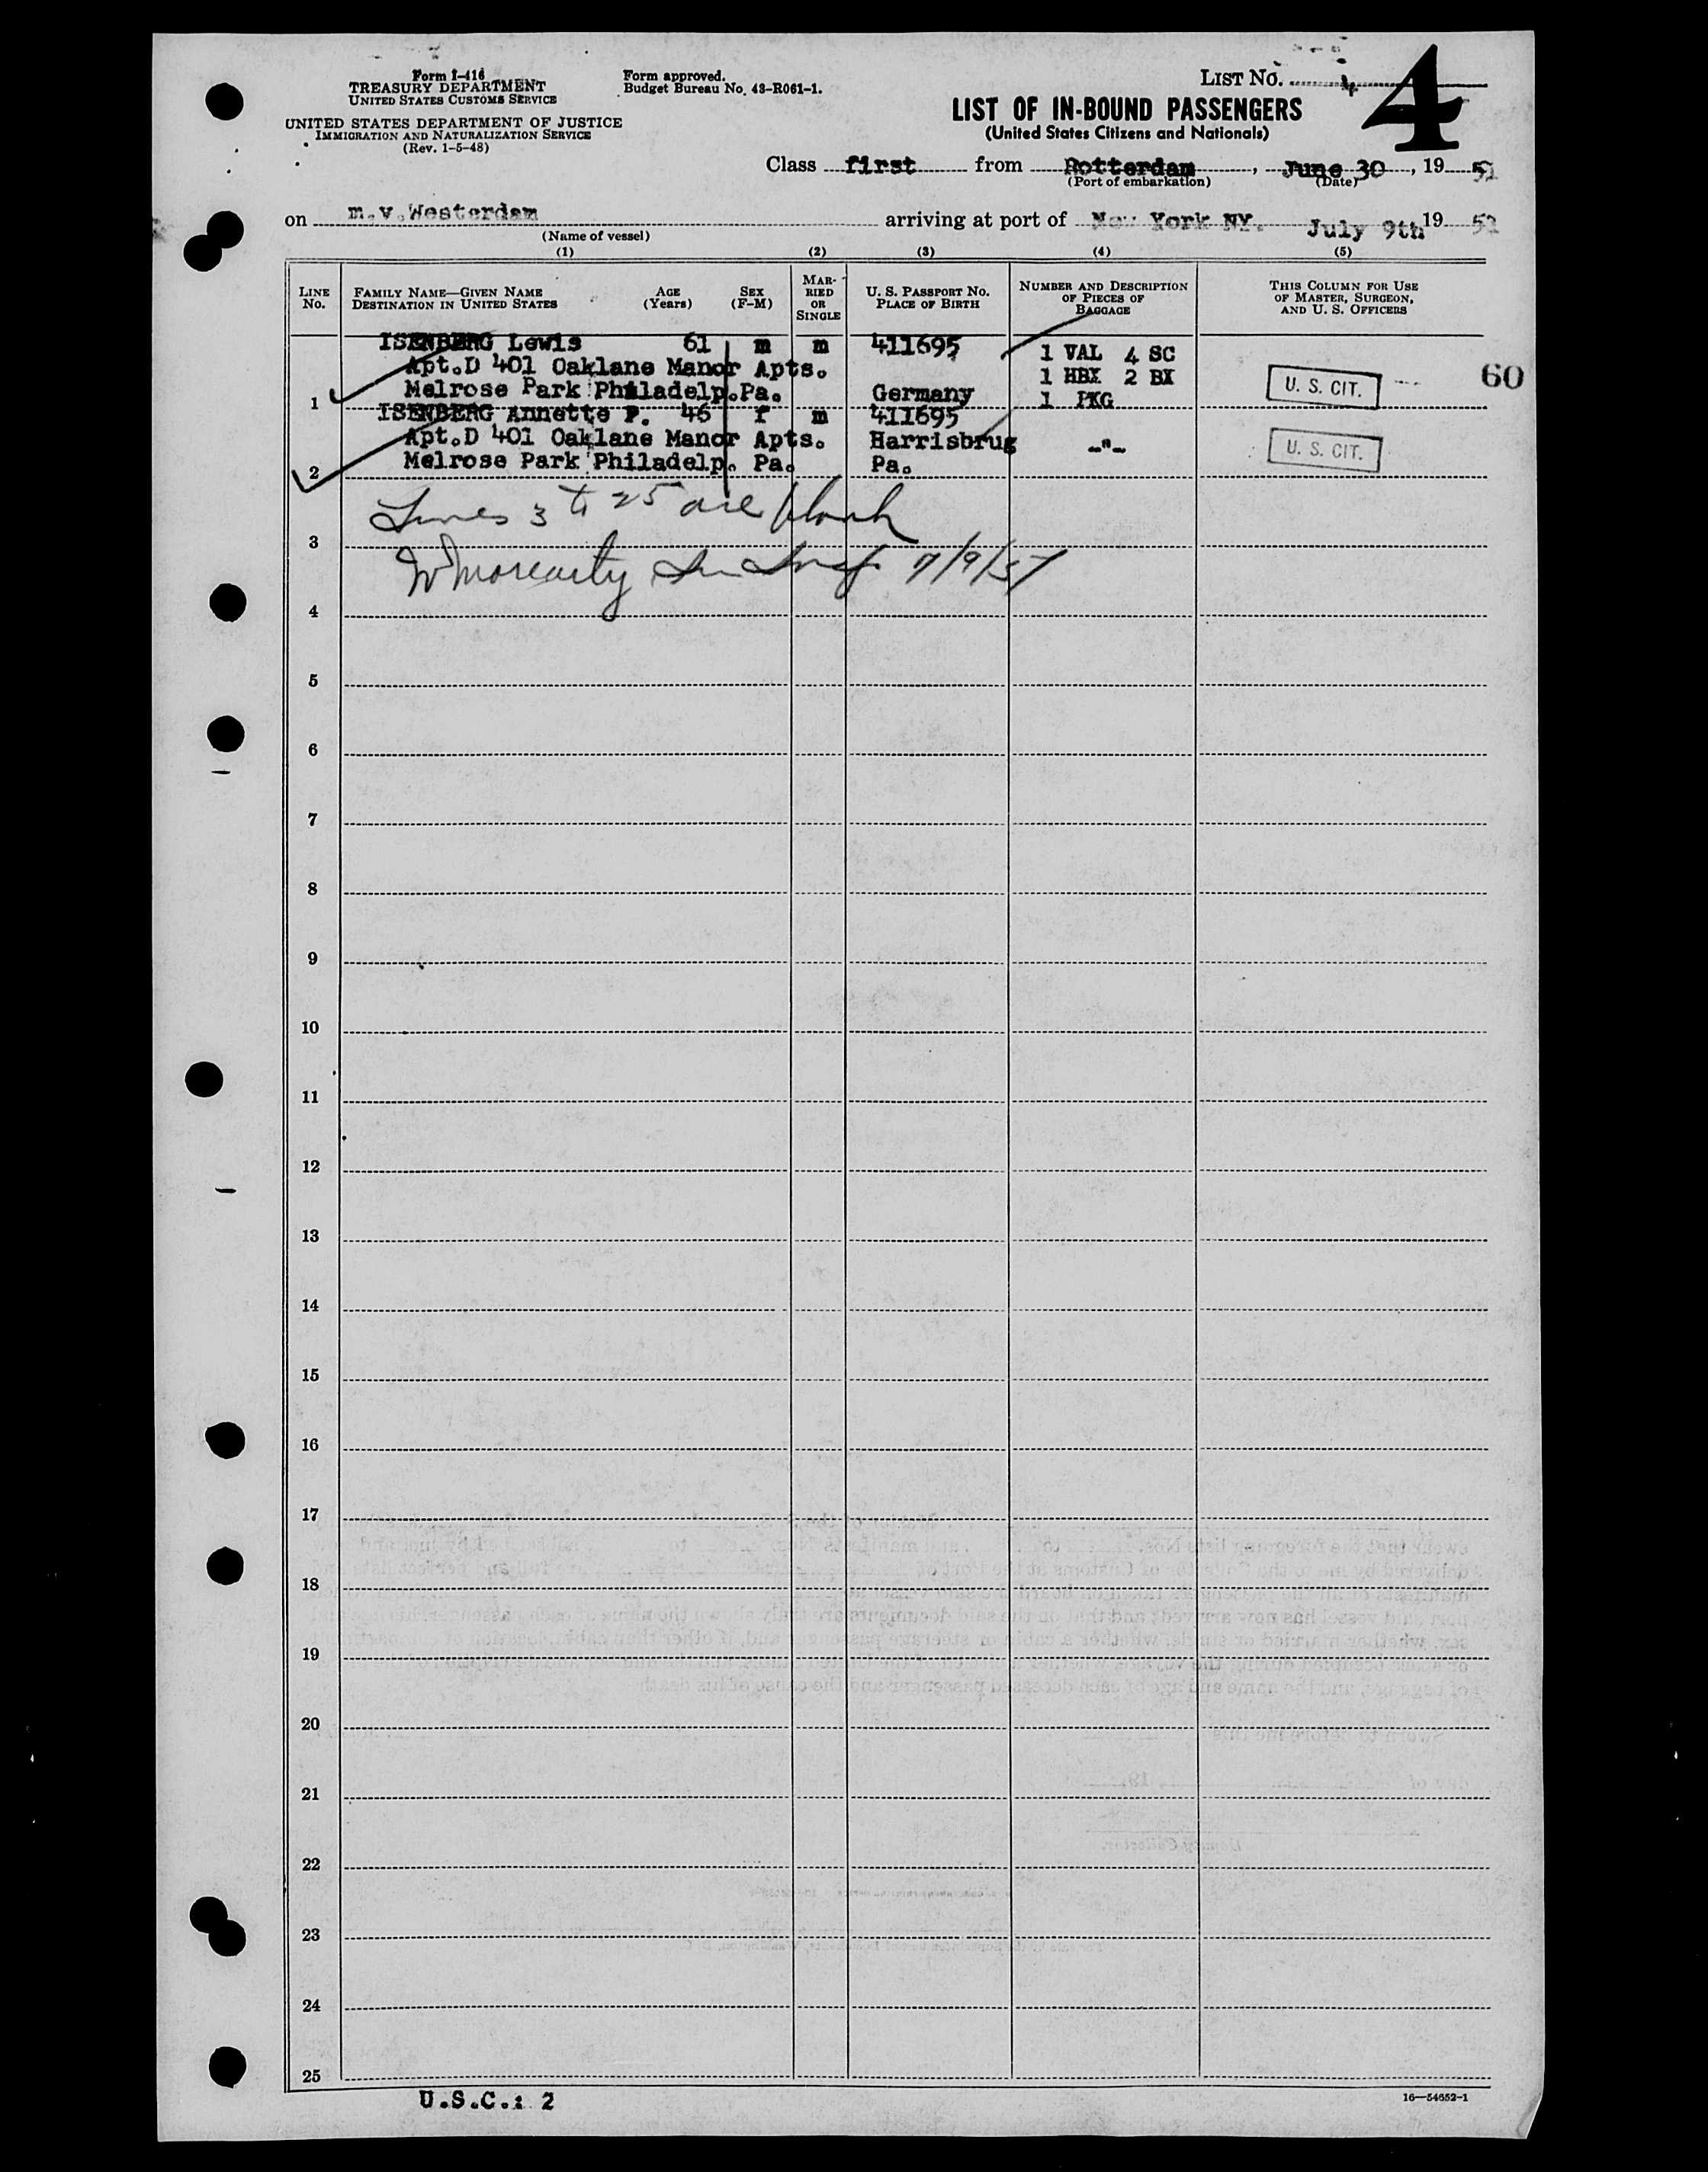 Form I-416
TREASURY DEPARTMENT
UNITED STATES CUSTOMS SERVICE
UNITED STATES DEPARTMENT OF JUSTICE
IMMIGRATION AND NATURALIZATION SERVICE
(Rev. 1-5-48)
Form approved.
Budget Bureau No. 43-R061-1.
LIST NO. 4
4
LIST OF IN-BOUND PASSENGERS
(United States Citizens and Nationals)
Class first from Rotterdam, June 30, 19
(Port of embarkation) (Date)
on m.v.Westerdam arriving at port of New York NY. July 9th 19
(Name of vessel)
(1) (2) (3) (4) (5)
LINE No. FAMILY NAME—GIVEN NAME DESTINATION IN UNITED STATES AGE (Years) SEX (F-M) MARRIED OR SINGLE U. S. PASSPORT NO. PLACE OF BIRTH NUMBER AND DESCRIPTION OF PIECES OF BAGGAGE THIS COLUMN FOR USE OF MASTER, SURGEON, AND U. S. OFFICERS
ISENBERG Lewis 61 m m 411695 1 VAL 4 SC
Apt.D 401 Oaklane Manor Apts. 1 HBX 2 BX
1 Melrose Park Philadelp.Pa. Germany 1 PKG U. S. CIT. 60
ISENBERG Annette P. 46 f m 411695
Apt.D 401 Oaklane Manor Apts. Harrisbrug -"- U. S. CIT.
2 Melrose Park Philadelp. Pa. Pa.
Lines 3 to 25 are blank
3
W Moriarty 7/9/51
4
5
6
7
8
9
10
11
12
13
14
15
16
17
18
19
20
21
22
23
24
25
U.S.C.: 2
16—54652-1